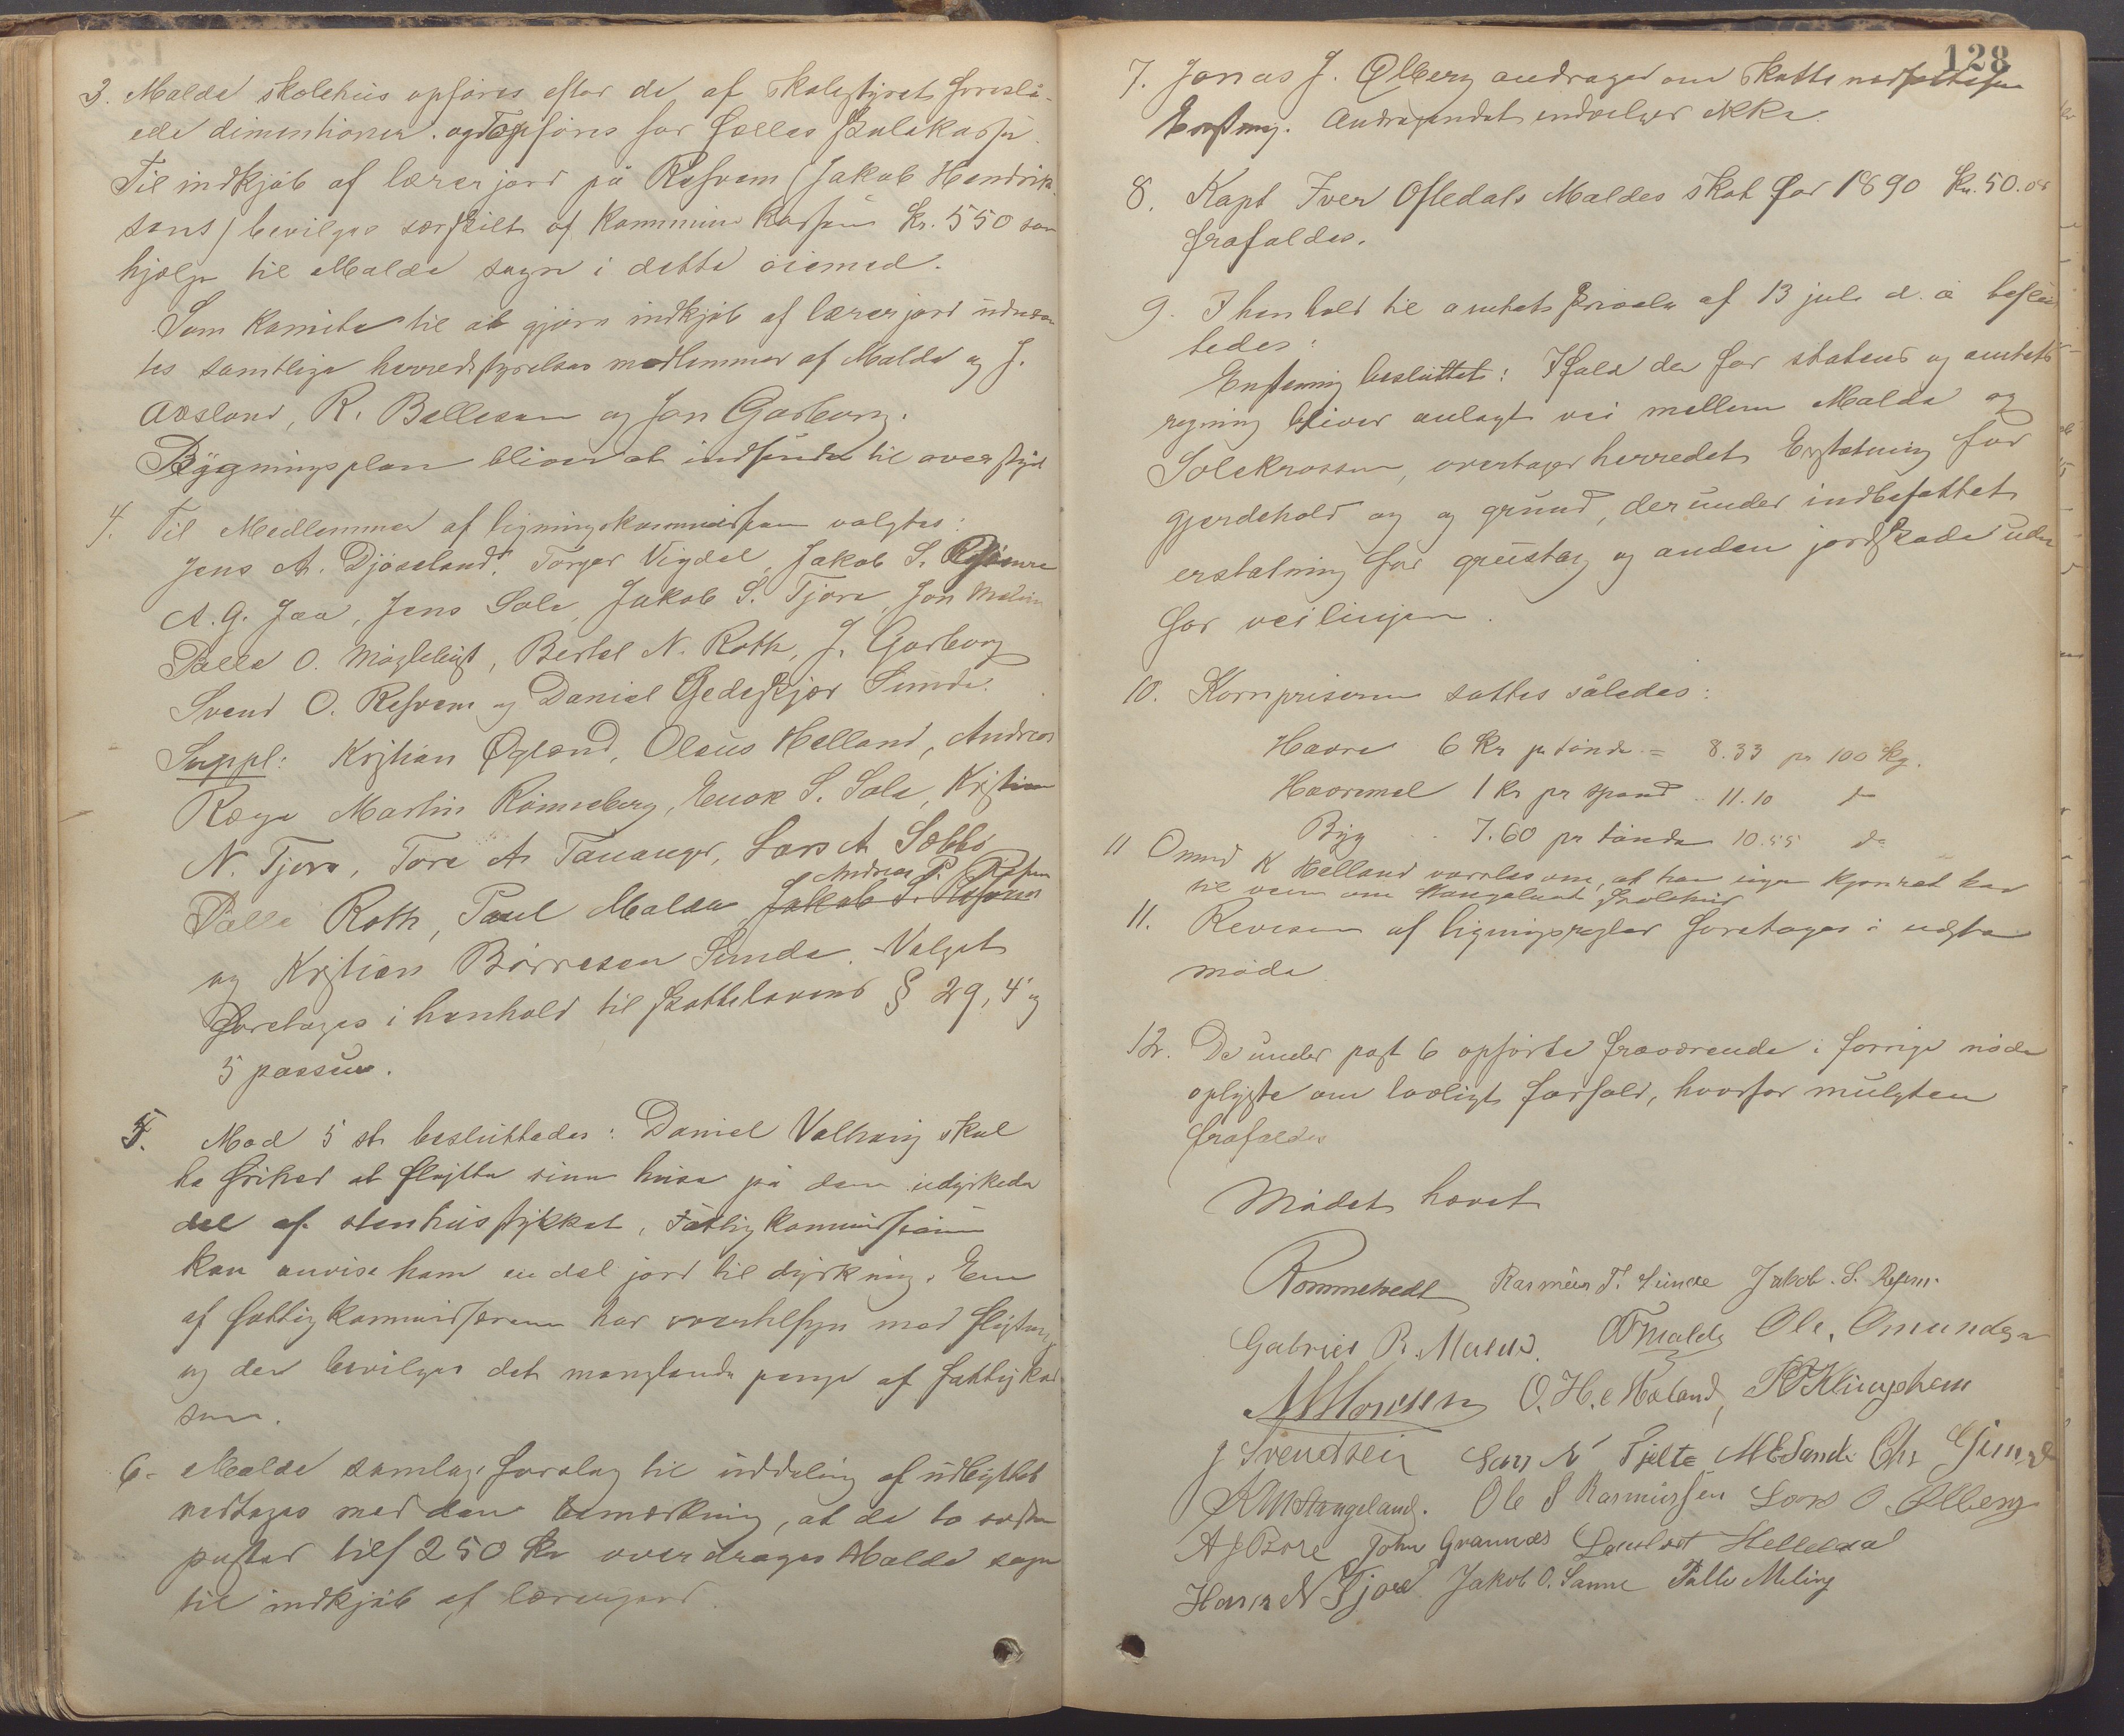 3. Malde skolehus opføres efter de af skolestyret foreslå-
ede dimentioner og opføres for fælles skolekasse.
Til indkjøb af lærerjord på Resvem (Jakob Hendrik-
sens) bevilges særskilt af Kommunekassen Kr. 550 som
hjælp til Malde sogn i dette øiemed.
Som Komite til at gjøre indkjøb af lærerjord udnævn
tes samtlige herredsstyrelses medlemmer af Malde og J.
Aasland, R. Bellesen og Jon Garborg.
Bygningsplan bliver at indsende til overstyret
4. Til Medlemmer af ligningskommissionen valgtes:
Jens A. Djøseland, Torger Vigdel, Jakob S.
A. G. Joa, Jens Sole, Jakob S. Tjora, Jon Meling
Palle O. Møgletigt, Bertel N. Roth, J. Garborg
Svend O. Resvem og Daniel Gedeskjær Sunde.
Suppl: Kristian Øgland, Olaus Helland, Andreas
Ræge Martin Rønneberg, Enok S. Sole, Kristian
N. Tjora, Tore A. Tananger, Lars A Sæbbø
Andreas P. Resvem
Palle Roth, Paul Malde Jakob S. Resvem
og Kristian Børresen Sunde. Valget
foretages i henhold til skattelovens § 29, 4 og
5 passus.
5. Mod 5 st. besluttedes: Daniel Valheim skal
ha frihed at flytte sine huse på den udyrkede
del af stenhusstykket, Fattigkommissionen
kan anvise ham en del jord til dyrkning. En
af fattigkommissærerne har overtilsyn med flytning
og der bevilges det manglende penge af fattigkas
sen.
6. Malde samlags forslag til uddeling af udbyttet
vedtages med den bemærkning, at de to sidste
poster tils 250 Kr overdrages Malde sogn
til indkjøb af lærerjord.
128
7. Jonas J. Ølberg andrager om skattenedsættelse
Enstemig. Andragendet indvilges ikke.
8. Kapt Iver Oftedals Maldes skat for 1890 Kr. 50.08
frafaldes.
9. I henhold til amtets skrivelse af 13 juli d. å beslut
tedes:
Enstemig besluttet: Ifald der for statens og amtets
regning bliver anlagt vei mellem Malde og
Solekrossen, overtager herredet Erstatning for
gjerdehold og og grund, derunder indbefattet
erstatning for grustag og anden jordskade uden
for veilinjen.
10. Kornpriserne sattes således:
Havre 6 Kr pr tønde = 8.33 pr 100 Kg.
Havremel 1 Kr pr spand 11.10 do
Byg 7.60 pr tønde 10.55 do
11 Omund K Helland varsles om, at han ingen kjøreret har
til veien om Stangeland skolehus
11. Revision af ligningsregler foretages i næste
møde.
12. De under post 6 opførte fraværende i forrige møde
oplyste om lovligt forfald, hvorfor mulkten
frafaldes
Mødet hævet
Rommetvedt Rasmus T. Sunde Jakob. S. Resvem.
Gabriel B. Malde. Malde Ole. Omundsen
O. H. Haaland,
J Svendsen Lars N Tjelta M E Sande Chr Gimre
Stangeland. Ole S Rasmussen Lars O. Ølberg
A J Bore John Grannes Lauritz Helledal
Hans N Tjora Jakob O. Sømme Palle Meling